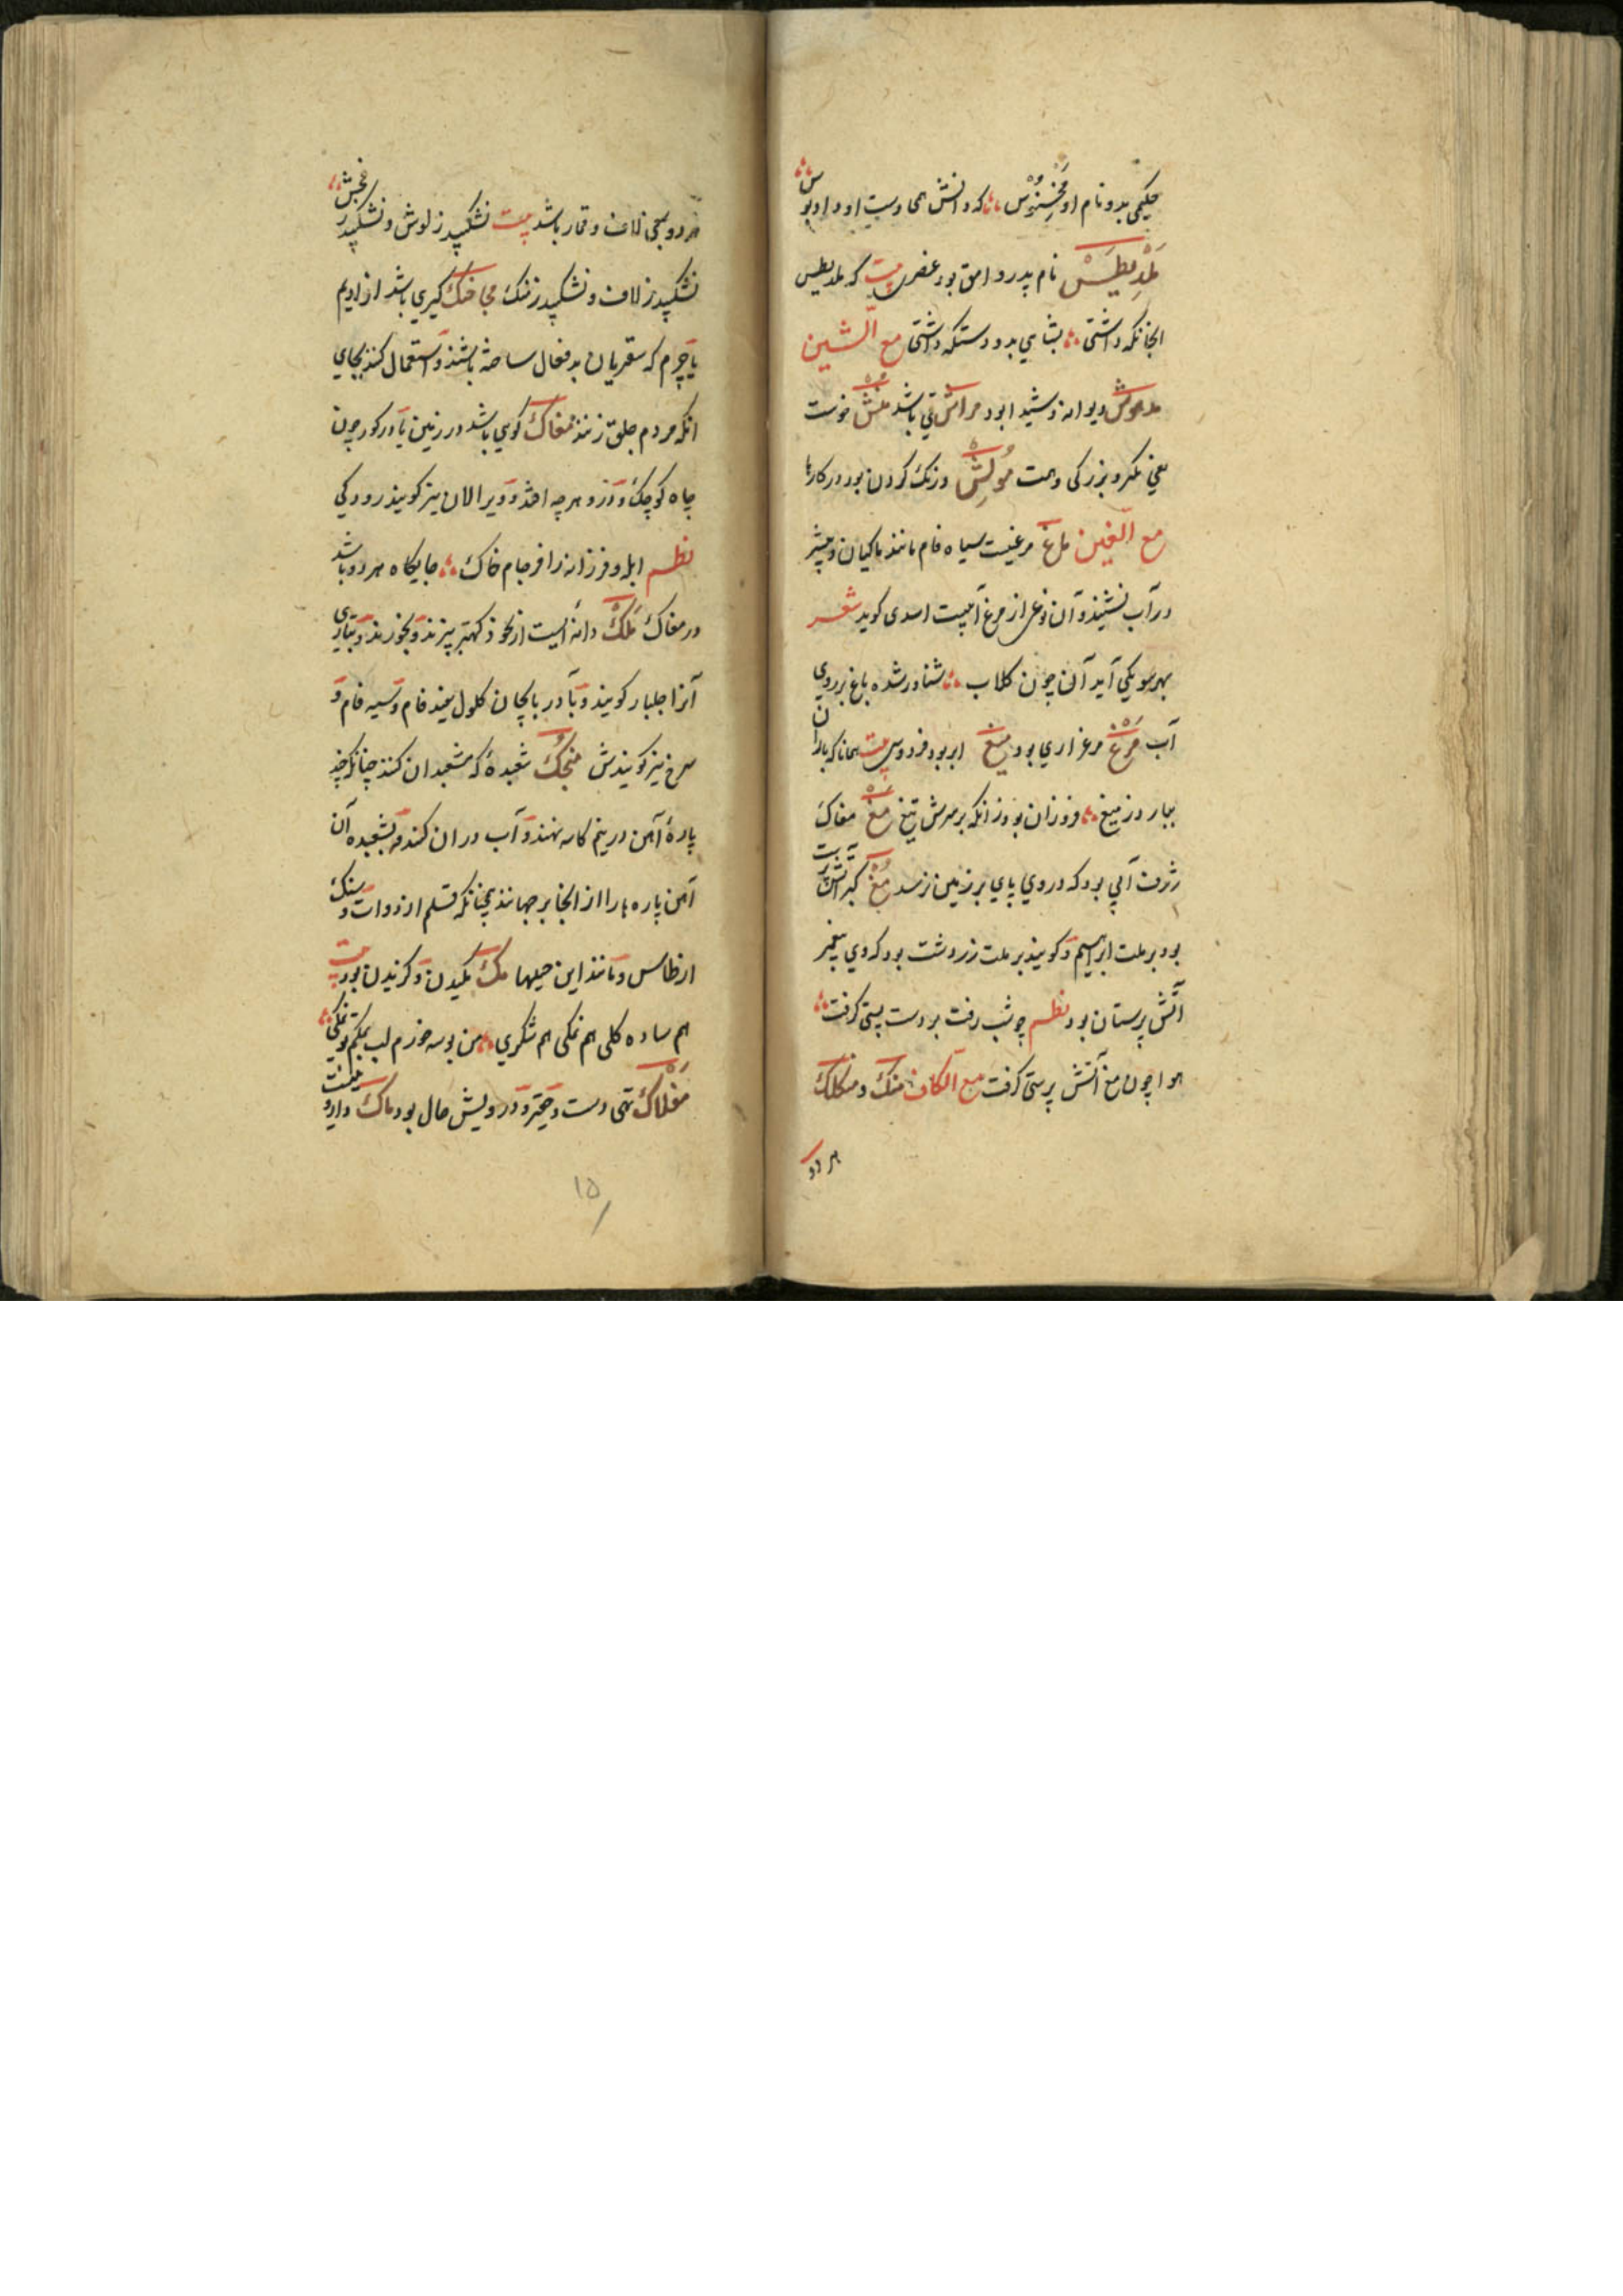 حکیمی بد و نام او مخسنوس ؞ که دانش همی دست او داد بوس ؞
ملذیطس نام پدر وامق بود عنصری بیت که ملذیطس
انجانکه داشتی ؞ بشاهی بد و دستکه داشتی مع الشین
مدهوش دیوانه و شیدا بود مراش قی باشد منش خوست
یعنی مکر و بزرکی و همت مولش درنک کردن بود در کارها
مع الغین ماغ مرغیست سیاه فام مانند ماکیان و بیشتر
در آب نشیند و آن نوعی از مرغ آبیست اسدی کوید شعر
بهر سو یکی آبدان چون کلاب ؞ شناور شده ماغ بر روی
آب مرغ مرغزاری بود میغ ابر بود فردوسی بیت همانا که باران
ببارد ز میغ ؞ فروزان بود زانکه بر سرش تیغ مغ مغاک
ژرف آبی بود که در وی پای بر زمین نرسد مغ کبر آتش پرست
بود بر ملت ابراهیم و کویند بر ملت زردشت بود که وی پیغمبر
آتش پرستان بود نظم چو شب رفت بر دست پستی کرفت ؞
هوا چون مغ آتش پرستی کرفت مع الکاف منک و منکلک
هر دو
هر دو بمعنی لاف و قمار باشد بیت نشکیبد ز لوش و نشکیبد
نشکیبد ز لاف و نشکیبد ز منک مچاچنک کیری باشد از ادیم
یا چرم که سعتریان بد فعال ساخته باشند و استعمال کنند بجای
انکه مردم جلق زنند مغاک کوی باشد در زمین یا در کور چون
چاه کوچک و ژرف هر چه افتد و ویرا لان نیز کویند رودکی
نظم ابله و فرزانه را فرجام خاک ؞ جایکاه هر دو باشد
در مغاک ملک دانه ایست از نخود کهتر پزند و بخورند و بتازی
آنرا جلبار کویند و با دربالچان کلول سفید فام و سیه فام و
سرخ نیز کویندش منجک شعبده که مشعبدان کنند چنانکه چند
پارهٔ آهن در بنم کاسه نهند و آب دران کنند و بشعبده آن
آهن پاره ها را از انجا بر جهانند همچنانکه قلم از دوات و سنک
از طاس و مانند این حیلها مک مکیدن و کزیدن بود بیت
هم ساده کلی هم نمکی هم شکری ؞ من بوسه خورم لب بمکم تو نمکی ؞
مفلاک تهی دست و حقیر و درویش حال بود ماک داروئیست
۱۵